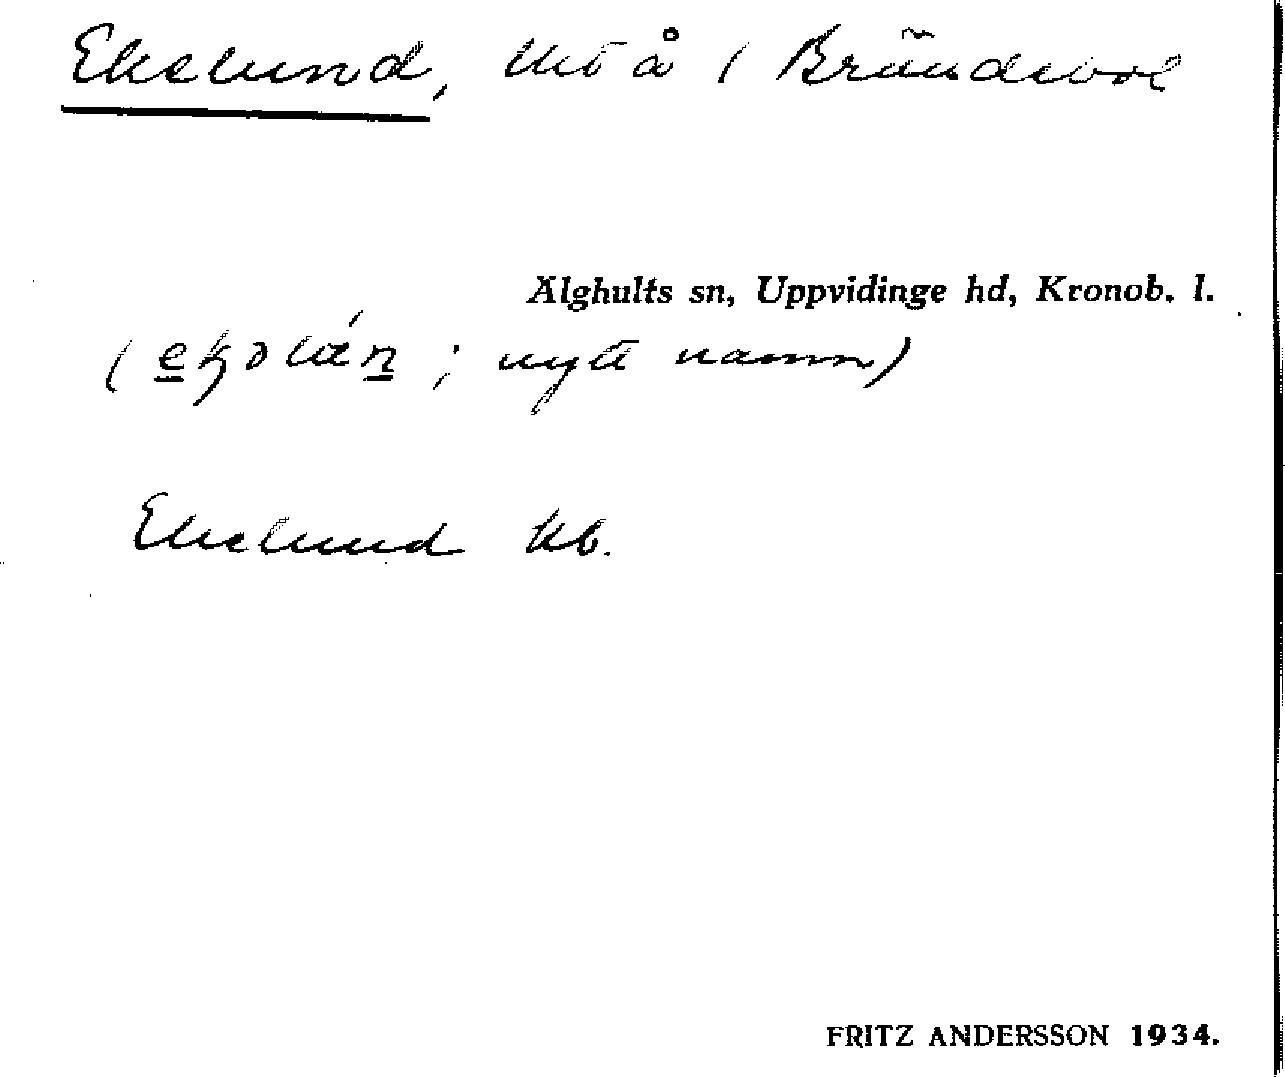 Ekelund, å 1 Brändebol
Älghults sn, Uppvidinge hd, Kronob. l.
( ; nytt namn)
Ekelund kb.
FRITZ ANDERSSON 1934.